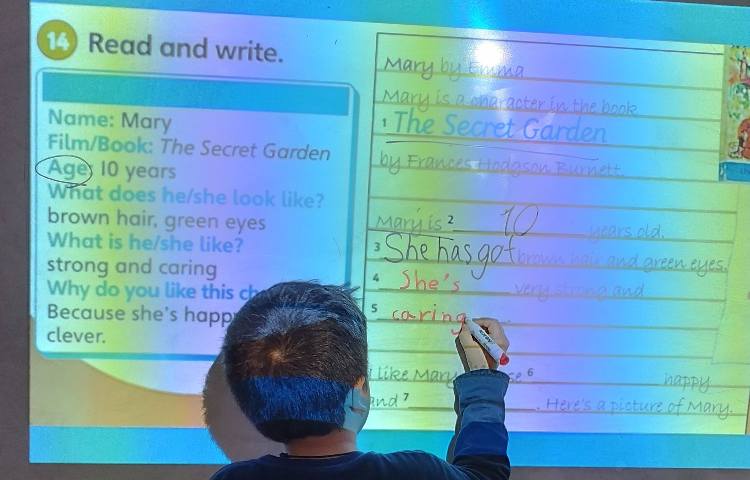 14 Read and write.
Name: Mary
Film/Book: The Secret Garden
Age: 10 years
What does he/she look like?
brown hair, green eyes
What is he/she like?
strong and caring
Why do you like this ch
Because she's happ
clever.
Mary by Emma
Mary is a character in the book
1 The Secret Garden
by Frances Hodgson Burnett.
Mary is 2 10 years old.
3 She has got brown hair and green eyes.
4 She's very strong and
5 caring
I like Mary se 6 happy
and 7 . Here's a picture of Mary.